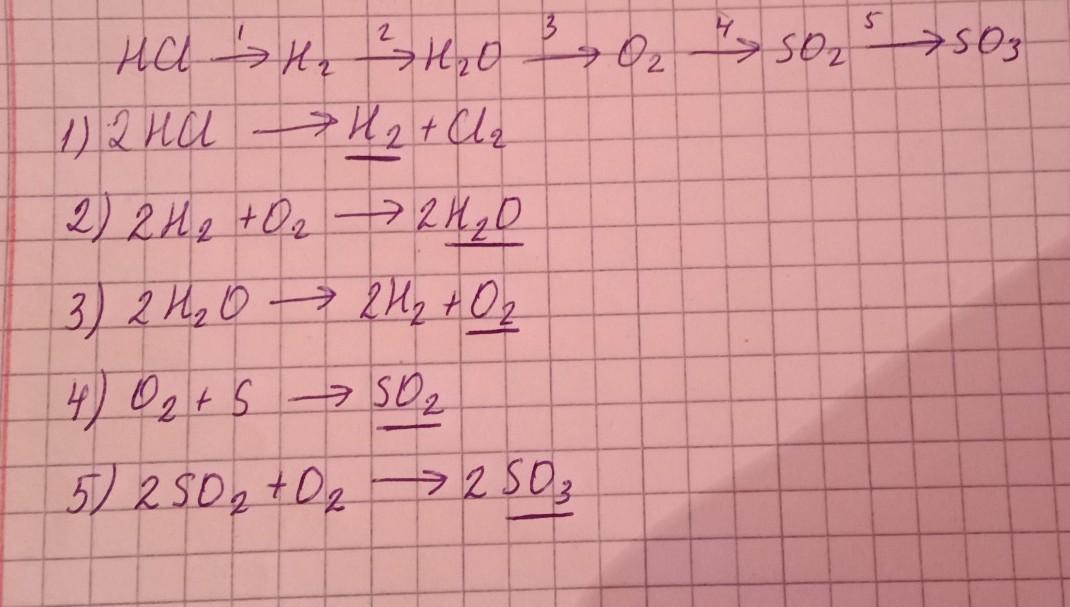 HCl →¹ H₂ →² H₂O →³ O₂ →⁴ SO₂ →⁵ SO₃
1) 2HCl → H₂ + Cl₂
2) 2H₂ + O₂ → 2H₂O
3) 2H₂O → 2H₂ + O₂
4) O₂ + S → SO₂
5) 2SO₂ + O₂ → 2SO₃